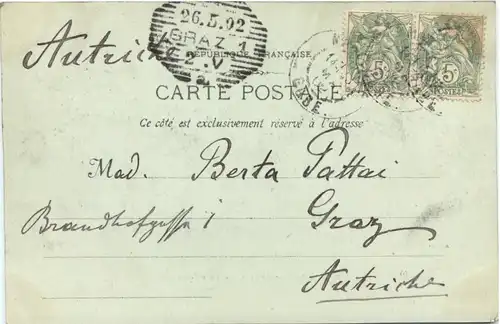 Autriche
26.5.02
GRAZ 1
2.V
RÉPUBLIQUE FRANÇAISE
5c 5c
POSTES POSTES
CARTE POSTALE
Ce côté est exclusivement réservé à l'adresse
Mad. Berta Pattai
Brandhofgasse 1 Graz
Autriche